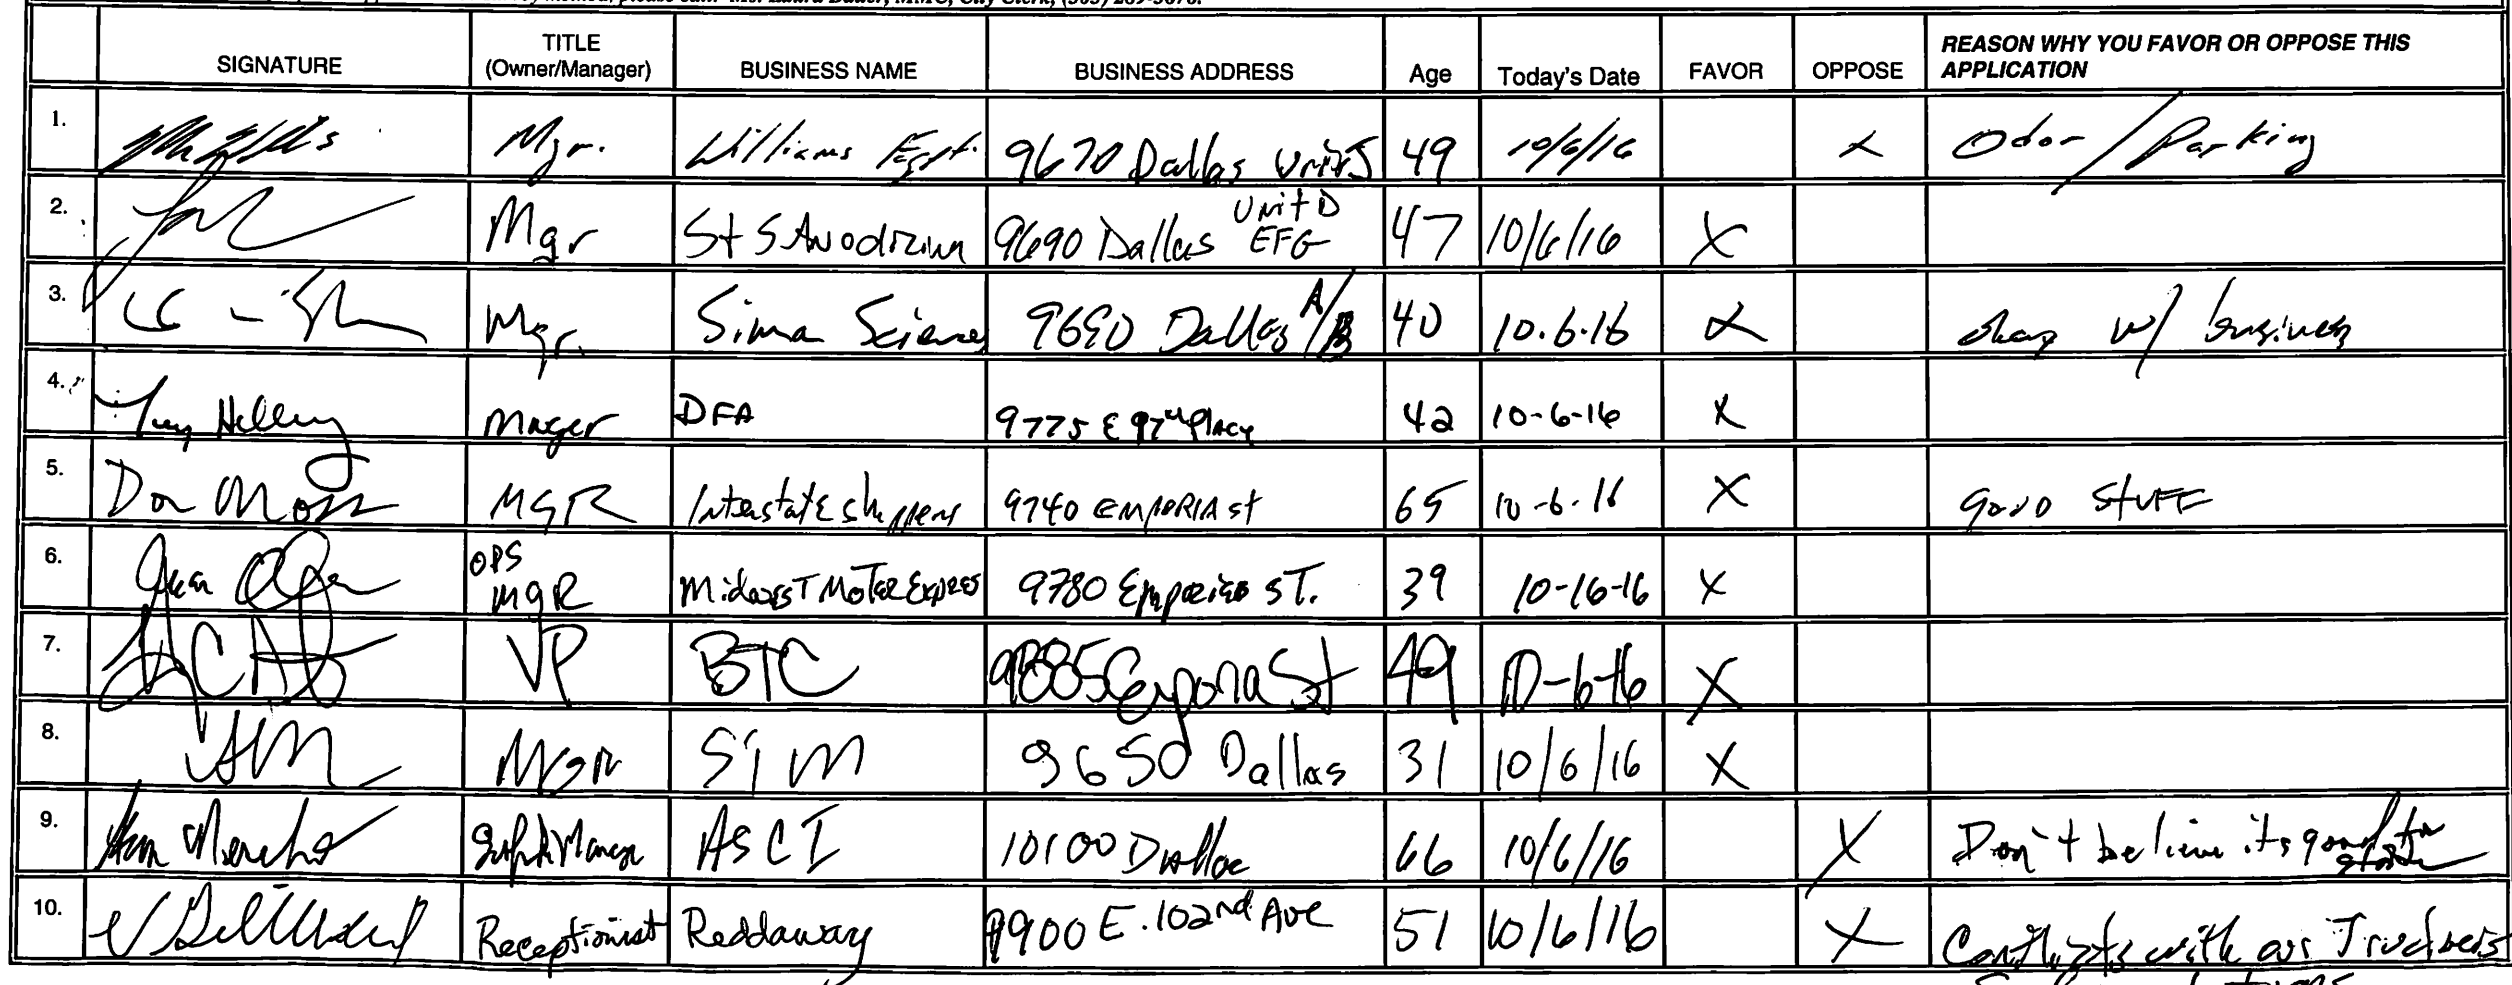 please call: Ms. Laura Bauer, MMC, City Clerk, (303) 289-3678.
SIGNATURE TITLE (Owner/Manager) BUSINESS NAME BUSINESS ADDRESS Age Today's Date FAVOR OPPOSE REASON WHY YOU FAVOR OR OPPOSE THIS APPLICATION
1. Mgr. Williams 9670 Dallas Unit J 49 10/6/16 X Odor / Parking
2. Mgr St S Anodizing 9690 Dallas Unit D EFG 47 10/6/16 X
3. Mgr. Sima Sciences 9690 Dallas A/B 40 10.6.16 X w/ business
4. Mnger DFA 9775 E 97th Place 42 10-6-16 X
5. Don MGR Interstate shippers 9740 EMPORIA st 65 10-6-16 X good STUFF
6. OPS MGR Midwest Motor Express 9780 Emporia ST. 39 10-16-16 X
7. VP BTC 9885 Emporia St 49 10-6-16 X
8. MGR SIM 9650 Dallas 31 10/6/16 X
9. ASCI 10100 Dallas 66 10/6/16 X Don't believe its good for
10. Receptionist Reddaway 9900 E. 102nd Ave 51 10/6/16 X Conflicts with our Truckers